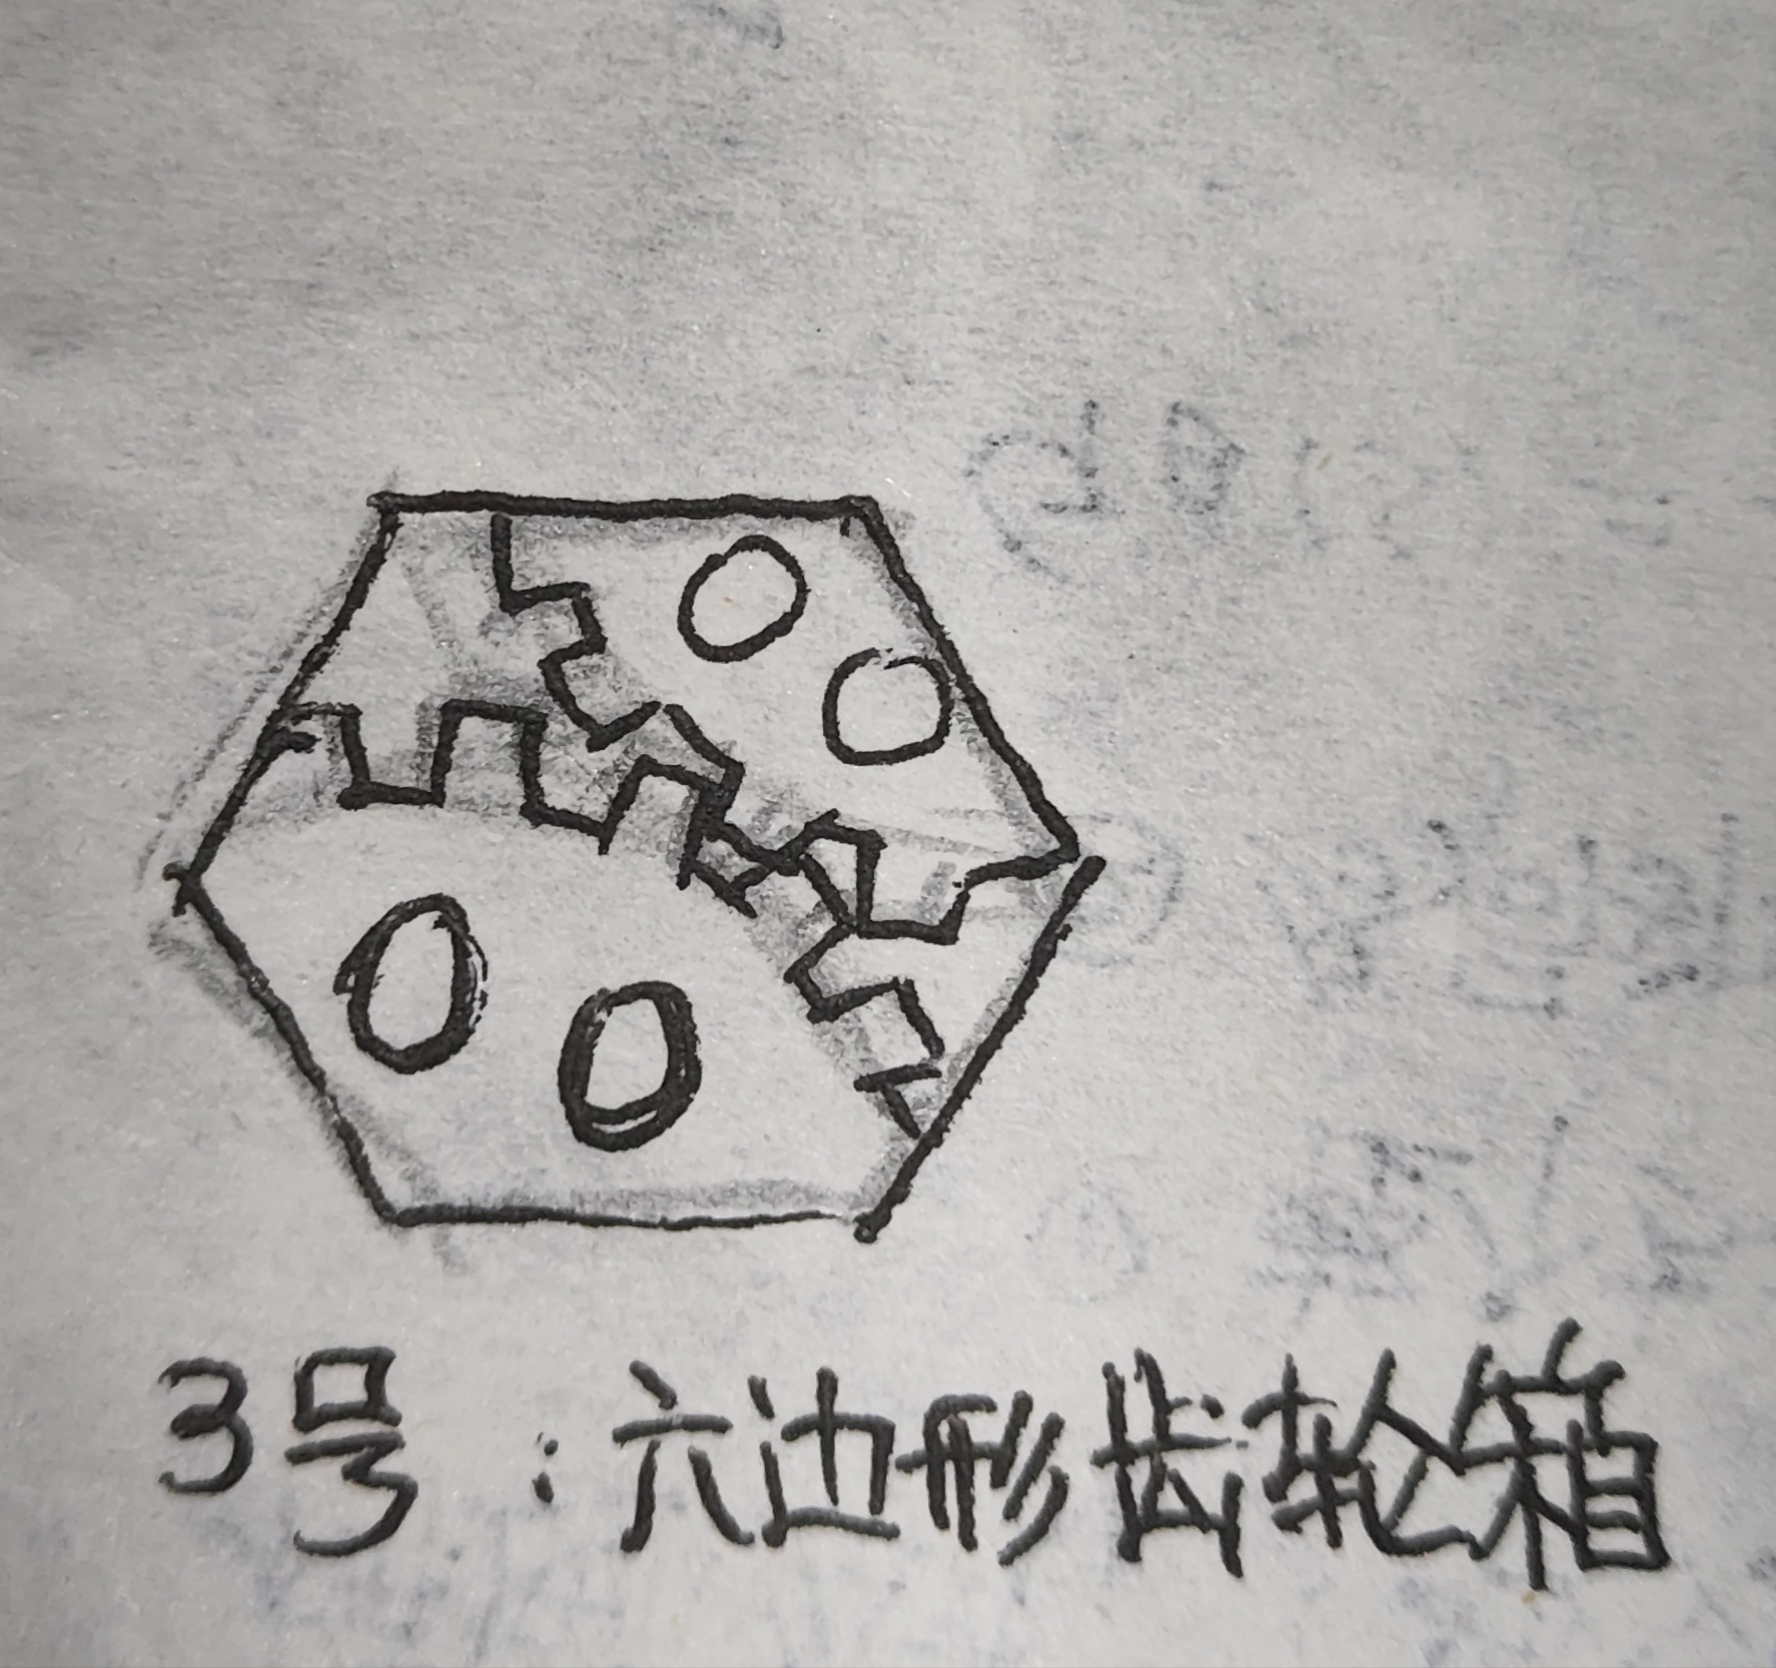 3号：六边形齿轮箱